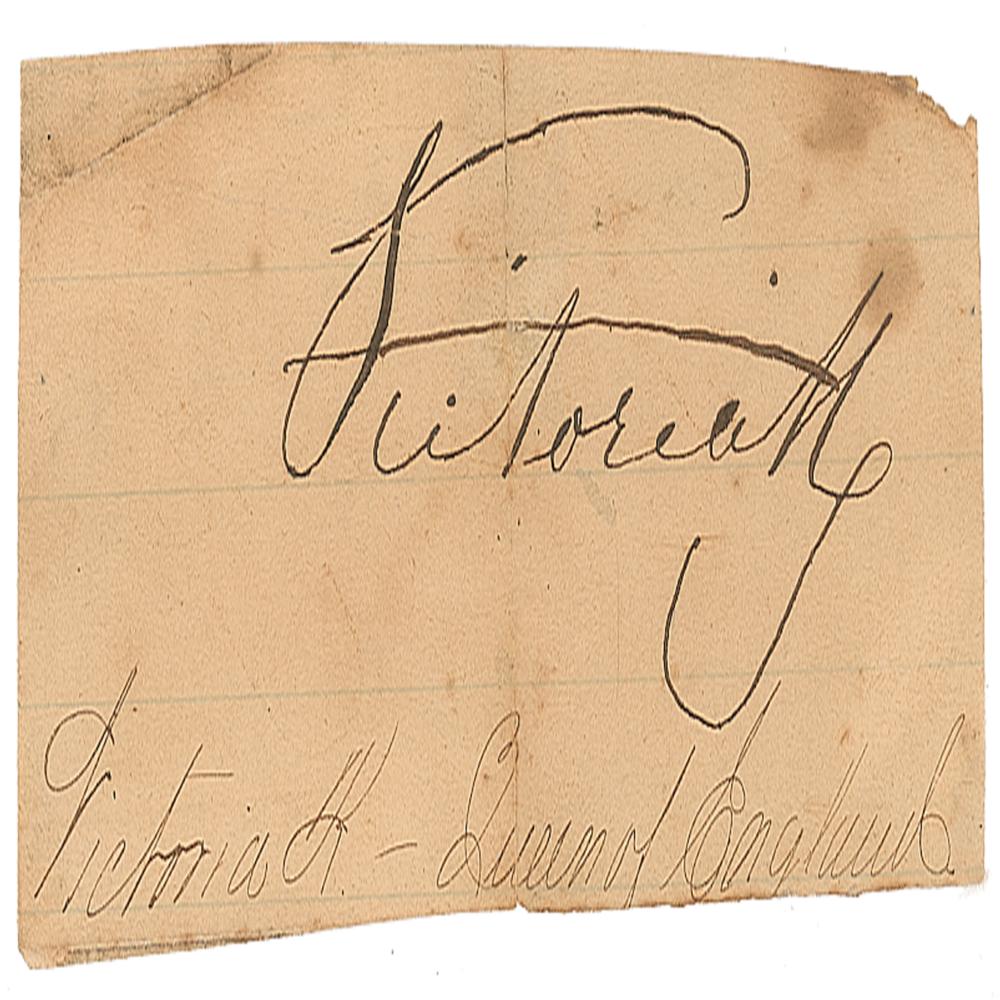 Victoria R
Victoria R. – Queen of England